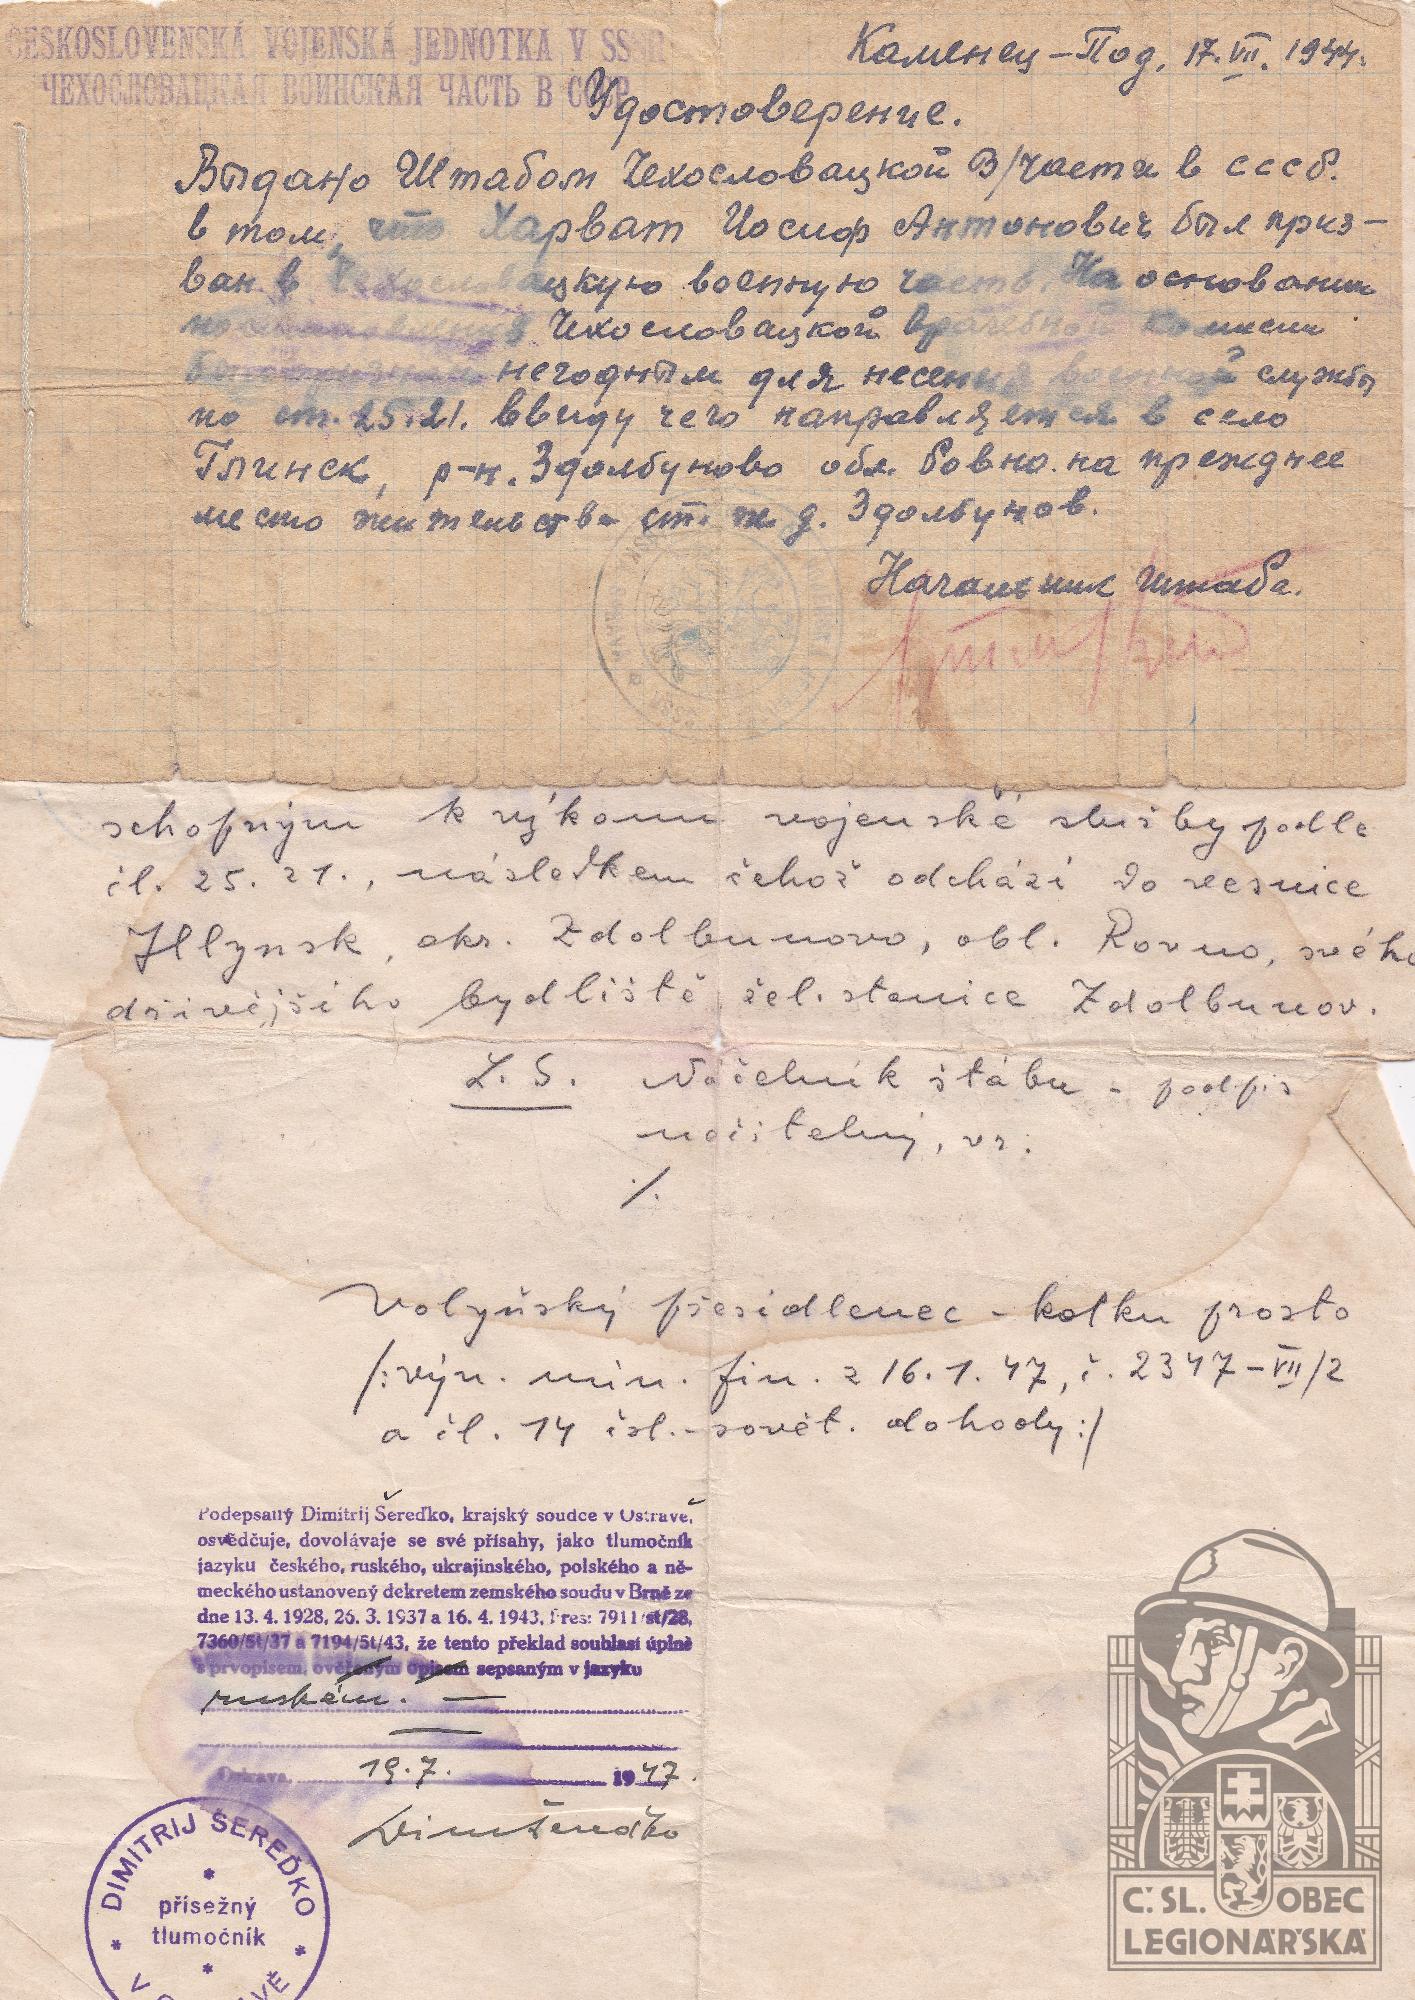 ČESKOSLOVENSKÁ VOJENSKÁ JEDNOTKA V SSSR
ЧЕХОСЛОВАЦКАЯ ВОИНСКАЯ ЧАСТЬ В СССР
Каменец-Под. 17.VII.1944.
Удостоверение.
Выдано Штабом Чехословацкой В/части в СССР.
в том, что Харват Иосиф Антонович был приз-
ван в Чехословацкую военную часть. На основании
Чехословацкой врачебной комисии
негодным для несения военной службы
по ст. 25.21. ввиду чего направляется в село
Глинск, р-н. Здолбуново обл. Ровно. на прежднее
место жительства ст. ж. д. Здолбунов.
Начальник штаба.
schopným k výkonu vojenské služby podle
čl. 25. 21., následkem čehož odchází do vesnice
Hlynsk, okr. Zdolbunovo, obl. Rovno, svého
dřívějšího bydliště žel. stanice Zdolbunov.
L. S. Náčelník štábu - podpis
nečitelný, vr.
./.
Volyňský přesídlenec - kolku prosto
/:výn. min. fin. z 16.1.47, č. 2347-VII/2
a čl. 14 čsl.-sovět. dohody:/
Podepsaný Dimitrij Šereďko, krajský soudce v Ostravě,
osvědčuje, dovolávaje se své přísahy, jako tlumočník
jazyku českého, ruského, ukrajinského, polského a ně-
meckého ustanovený dekretem zemského soudu v Brně ze
dne 13. 4. 1928, 26. 3. 1937 a 16. 4. 1943, Pres: 7911/st/28,
7360/5t/37 a 7194/5t/43, že tento překlad souhlasí úplně
s prvopisem, ověřeným opisem sepsaným v jazyku
ruském. —
Ostrava, 19.7. 1947.
Dim Šereďko
DIMITRIJ ŠEREĎKO
přísežný
tlumočník
Č. SL. OBEC
LEGIONÁŘSKÁ